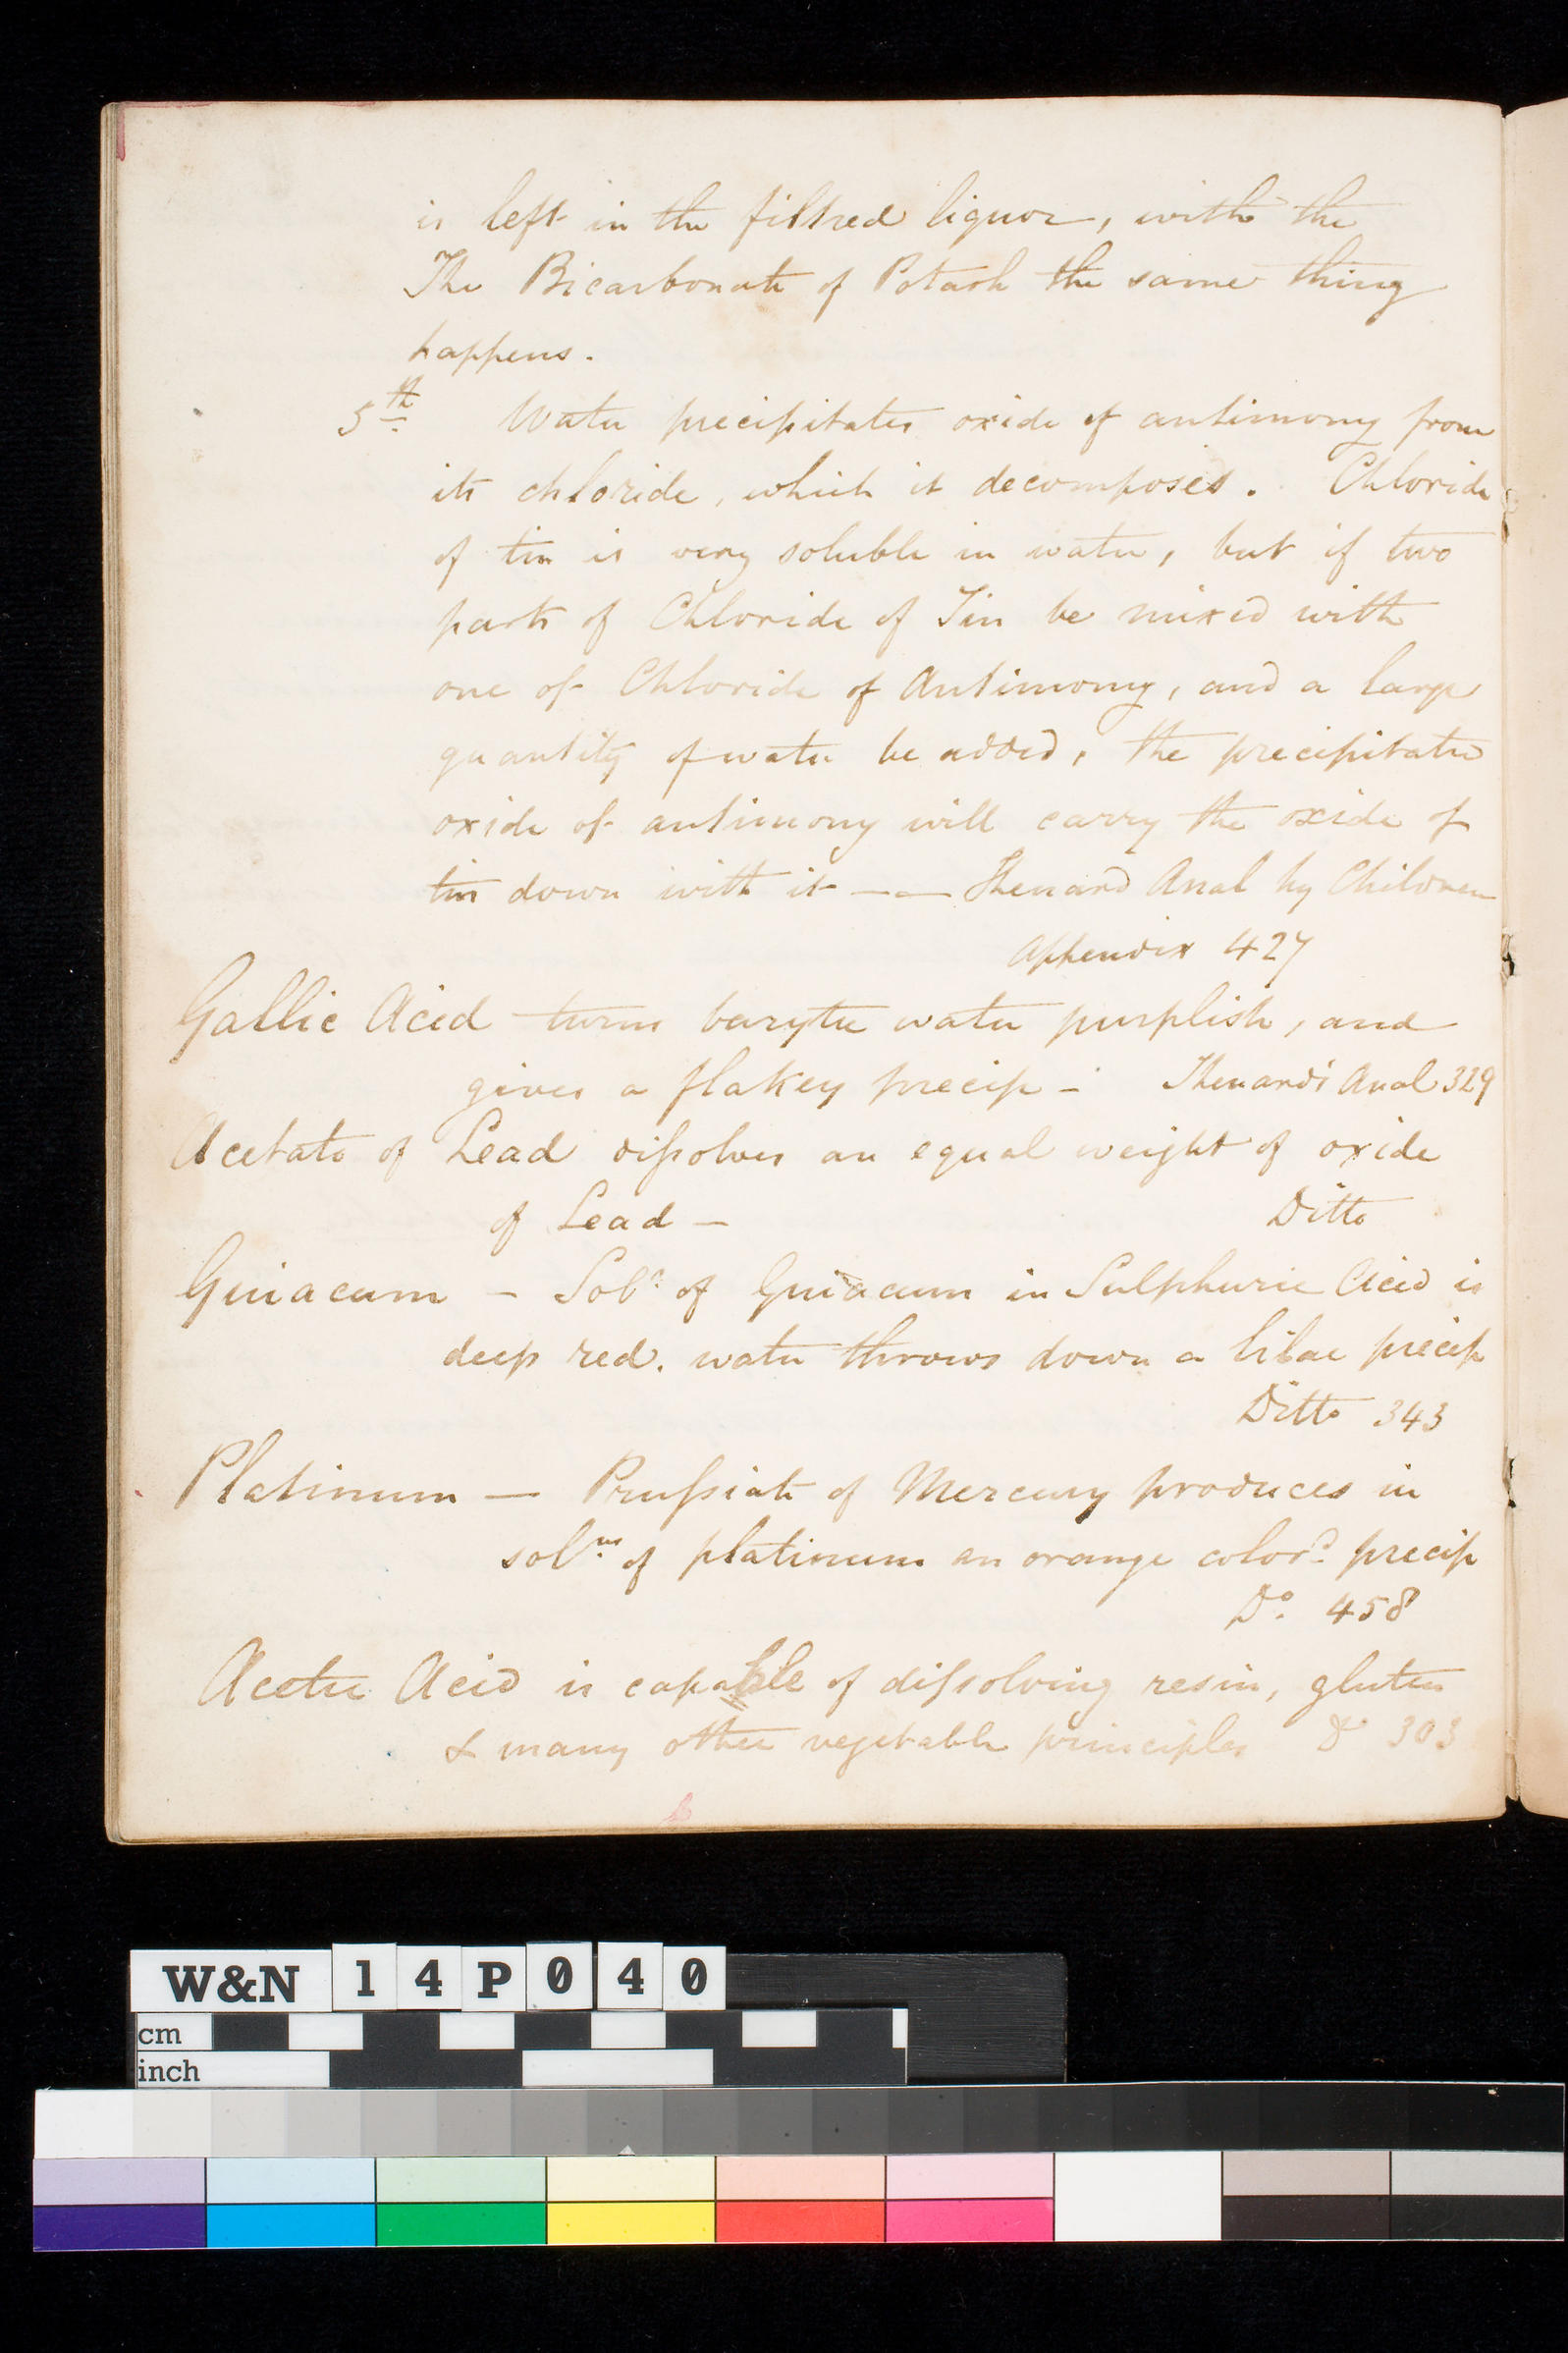 is left in the filtred liquor, with the
The Bicarbonate of Potash the same thing
happens.
5th Water precipitates oxide of antimony from
its chloride, which it decomposes. Chloride
of tin is very soluble in water, but if two
parts of Chloride of Tin be mixed with
one of Chloride of Antimony, and a large
quantity of water be added, the precipitate
oxide of antimony will carry the oxide of
tin down with it —— Thenard Anal by Children
Appendix 427
Gallic Acid turns barytic water purplish, and
gives a flakey precip - Thenard's Anal 329
Acetate of Lead dissolves an equal weight of oxide
of Lead — Ditto
Guiacum — Soln of Guiacum in Sulphuric Acid is
deep red. water throws down a lilac precip
Ditto 343
Platinum — Prussiate of Mercury produces in
solns of platinum an orange colord precip
Do. 458
Acetic Acid is capable of dissolving resin, gluten
& many other vegetable principles Do 303
W&N 14P040
cm
inch